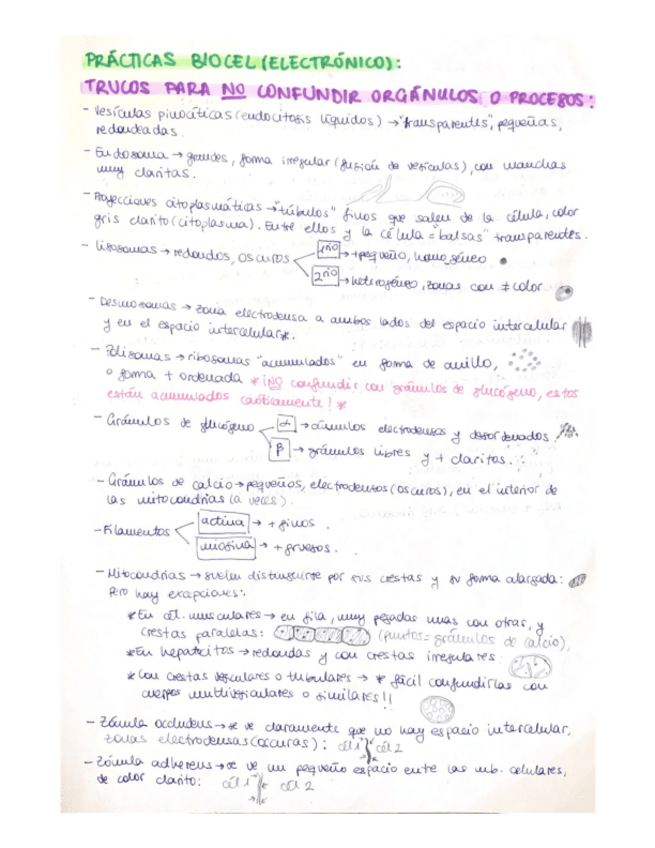 PRÁCTICAS BIOCEL (ELECTRÓNICO):
TRUCOS PARA NO CONFUNDIR ORGÁNULOS O PROCESOS:
- Vesículas pinocíticas (endocitosis líquidos) → "transparentes", pequeñas,
redondeadas.
- Endosoma → grandes, forma irregular (fusión de vesículas), con manchas
muy claritas.
- Proyecciones citoplasmáticas → "túbulos" finos que salen de la célula, color
gris clarito (citoplasma). Entre ellos y la célula = "balsas" transparentes.
- Lisosomas → redondos, oscuros
1rio → + pequeño, homogéneo
2rio → heterogéneo, zonas con ≠ color
- Desmosomas → zona electrodensa a ambos lados del espacio intercelular
y en el espacio intercelular*.
- Polisomas → ribosomas "acumulados" en forma de anillo,
o forma + ordenada * ¡NO confundir con gránulos de glucógeno, estos
están acumulados caóticamente! *
- Gránulos de glucógeno
α → cúmulos electrodensos y desordenados
β → gránulos libres y + claritos.
- Gránulos de calcio → pequeños, electrodensos (oscuros), en el interior de
las mitocondrias (a veces).
- Filamentos
actina → + finos.
miosina → + gruesos.
- Mitocondrias → suelen distinguirse por sus crestas y su forma alargada:
Pero hay excepciones:
* En cél. musculares → en fila, muy pegadas unas con otras, y
crestas paralelas: (puntos = gránulos de calcio),
* En hepatocitos → redondas y con crestas irregulares
* Con crestas vesiculares o tubulares → * fácil confundirlas con
cuerpos multivesiculares o similares!!
- Zónula occludens → se ve claramente que no hay espacio intercelular,
zonas electrodensas (oscuras): cél 1 cél 2
- Zónula adherens → se ve un pequeño espacio entre las mb. celulares,
de color clarito: cél 1 cél 2